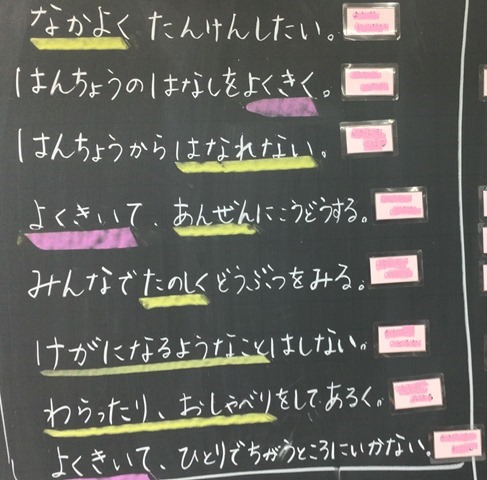 なかよく たんけんしたい。
はんちょうのはなしをよくきく。
はんちょうからはなれない。
よくきいて、あんぜんにこうどうする。
みんなでたのしくどうぶつをみる。
けがになるようなことはしない。
わらったり、おしゃべりをしてあるく。
よくきいて、ひとりでちがうところにいかない。